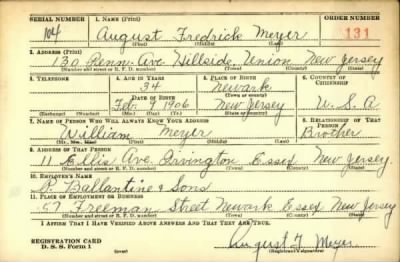 SERIAL NUMBER 1. NAME (Print) ORDER NUMBER
104 August Fredrick Meyer 131
(First) (Middle) (Last)
2. ADDRESS (Print)
130 Penn. Ave Hillside, Union New Jersey
(Number and street or R. F. D. number) (Town) (County) (State)
3. TELEPHONE 4. AGE IN YEARS 5. PLACE OF BIRTH 6. COUNTRY OF CITIZENSHIP
34 Newark
DATE OF BIRTH (Town or county)
Feb. 1906 New Jersey U.S.A
(Exchange) (Number) (Mo.) (Day) (Yr.) (State or country)
7. NAME OF PERSON WHO WILL ALWAYS KNOW YOUR ADDRESS 8. RELATIONSHIP OF THAT PERSON
William Meyer Brother
(Mr., Mrs., Miss) (First) (Middle) (Last)
9. ADDRESS OF THAT PERSON
11 Ellis Ave. Irvington Essex New Jersey
(Number and street or R. F. D. number) (Town) (County) (State)
10. EMPLOYER'S NAME
P. Ballantine & Sons
11. PLACE OF EMPLOYMENT OR BUSINESS
57 Freeman Street Newark Essex New Jersey
(Number and street or R. F. D. number) (Town) (County) (State)
I AFFIRM THAT I HAVE VERIFIED ABOVE ANSWERS AND THAT THEY ARE TRUE.
REGISTRATION CARD
D. S. S. Form 1
August F. Meyer
(Registrant's signature)